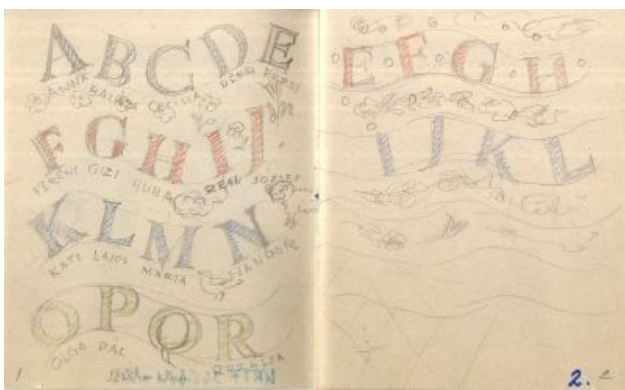 A B C D E
ANNA BALÁZS CECILIA
F G H I J
FERENC GIZI HUBA JÓZSEF
K L M N
KATI LAJOS MÁRIA NÁNDOR
O P Q R
OLGA PÁL ROZÁLIA
1
E F G H
I J K L
2.